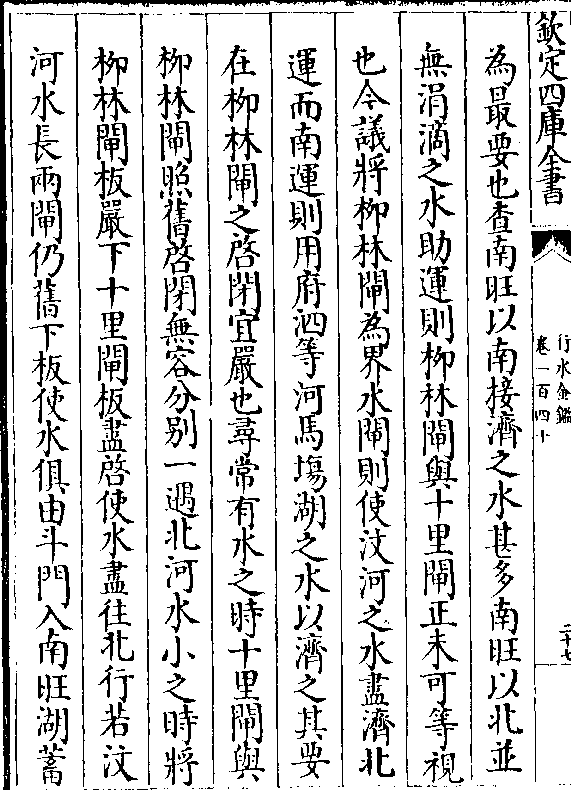 欽定四庫全書
行水金鑑
卷一百四十
二十七
為最要也查南旺以南接濟之水甚多南旺以北並
無涓滴之水助運則柳林閘與十里閘正未可等視
也今議將柳林閘為界水閘則使汶河之水盡濟北
運而南運則用府泗等河馬塲湖之水以濟之其要
在柳林閘之啓閉宜嚴也尋常有水之時十里閘與
柳林閘照舊啓閉無容分别一遇北河水小之時將
柳林閘板嚴下十里閘板盡啓使水盡往北行若汶
河水長兩閘仍舊下板使水俱由斗門入南旺湖蓄